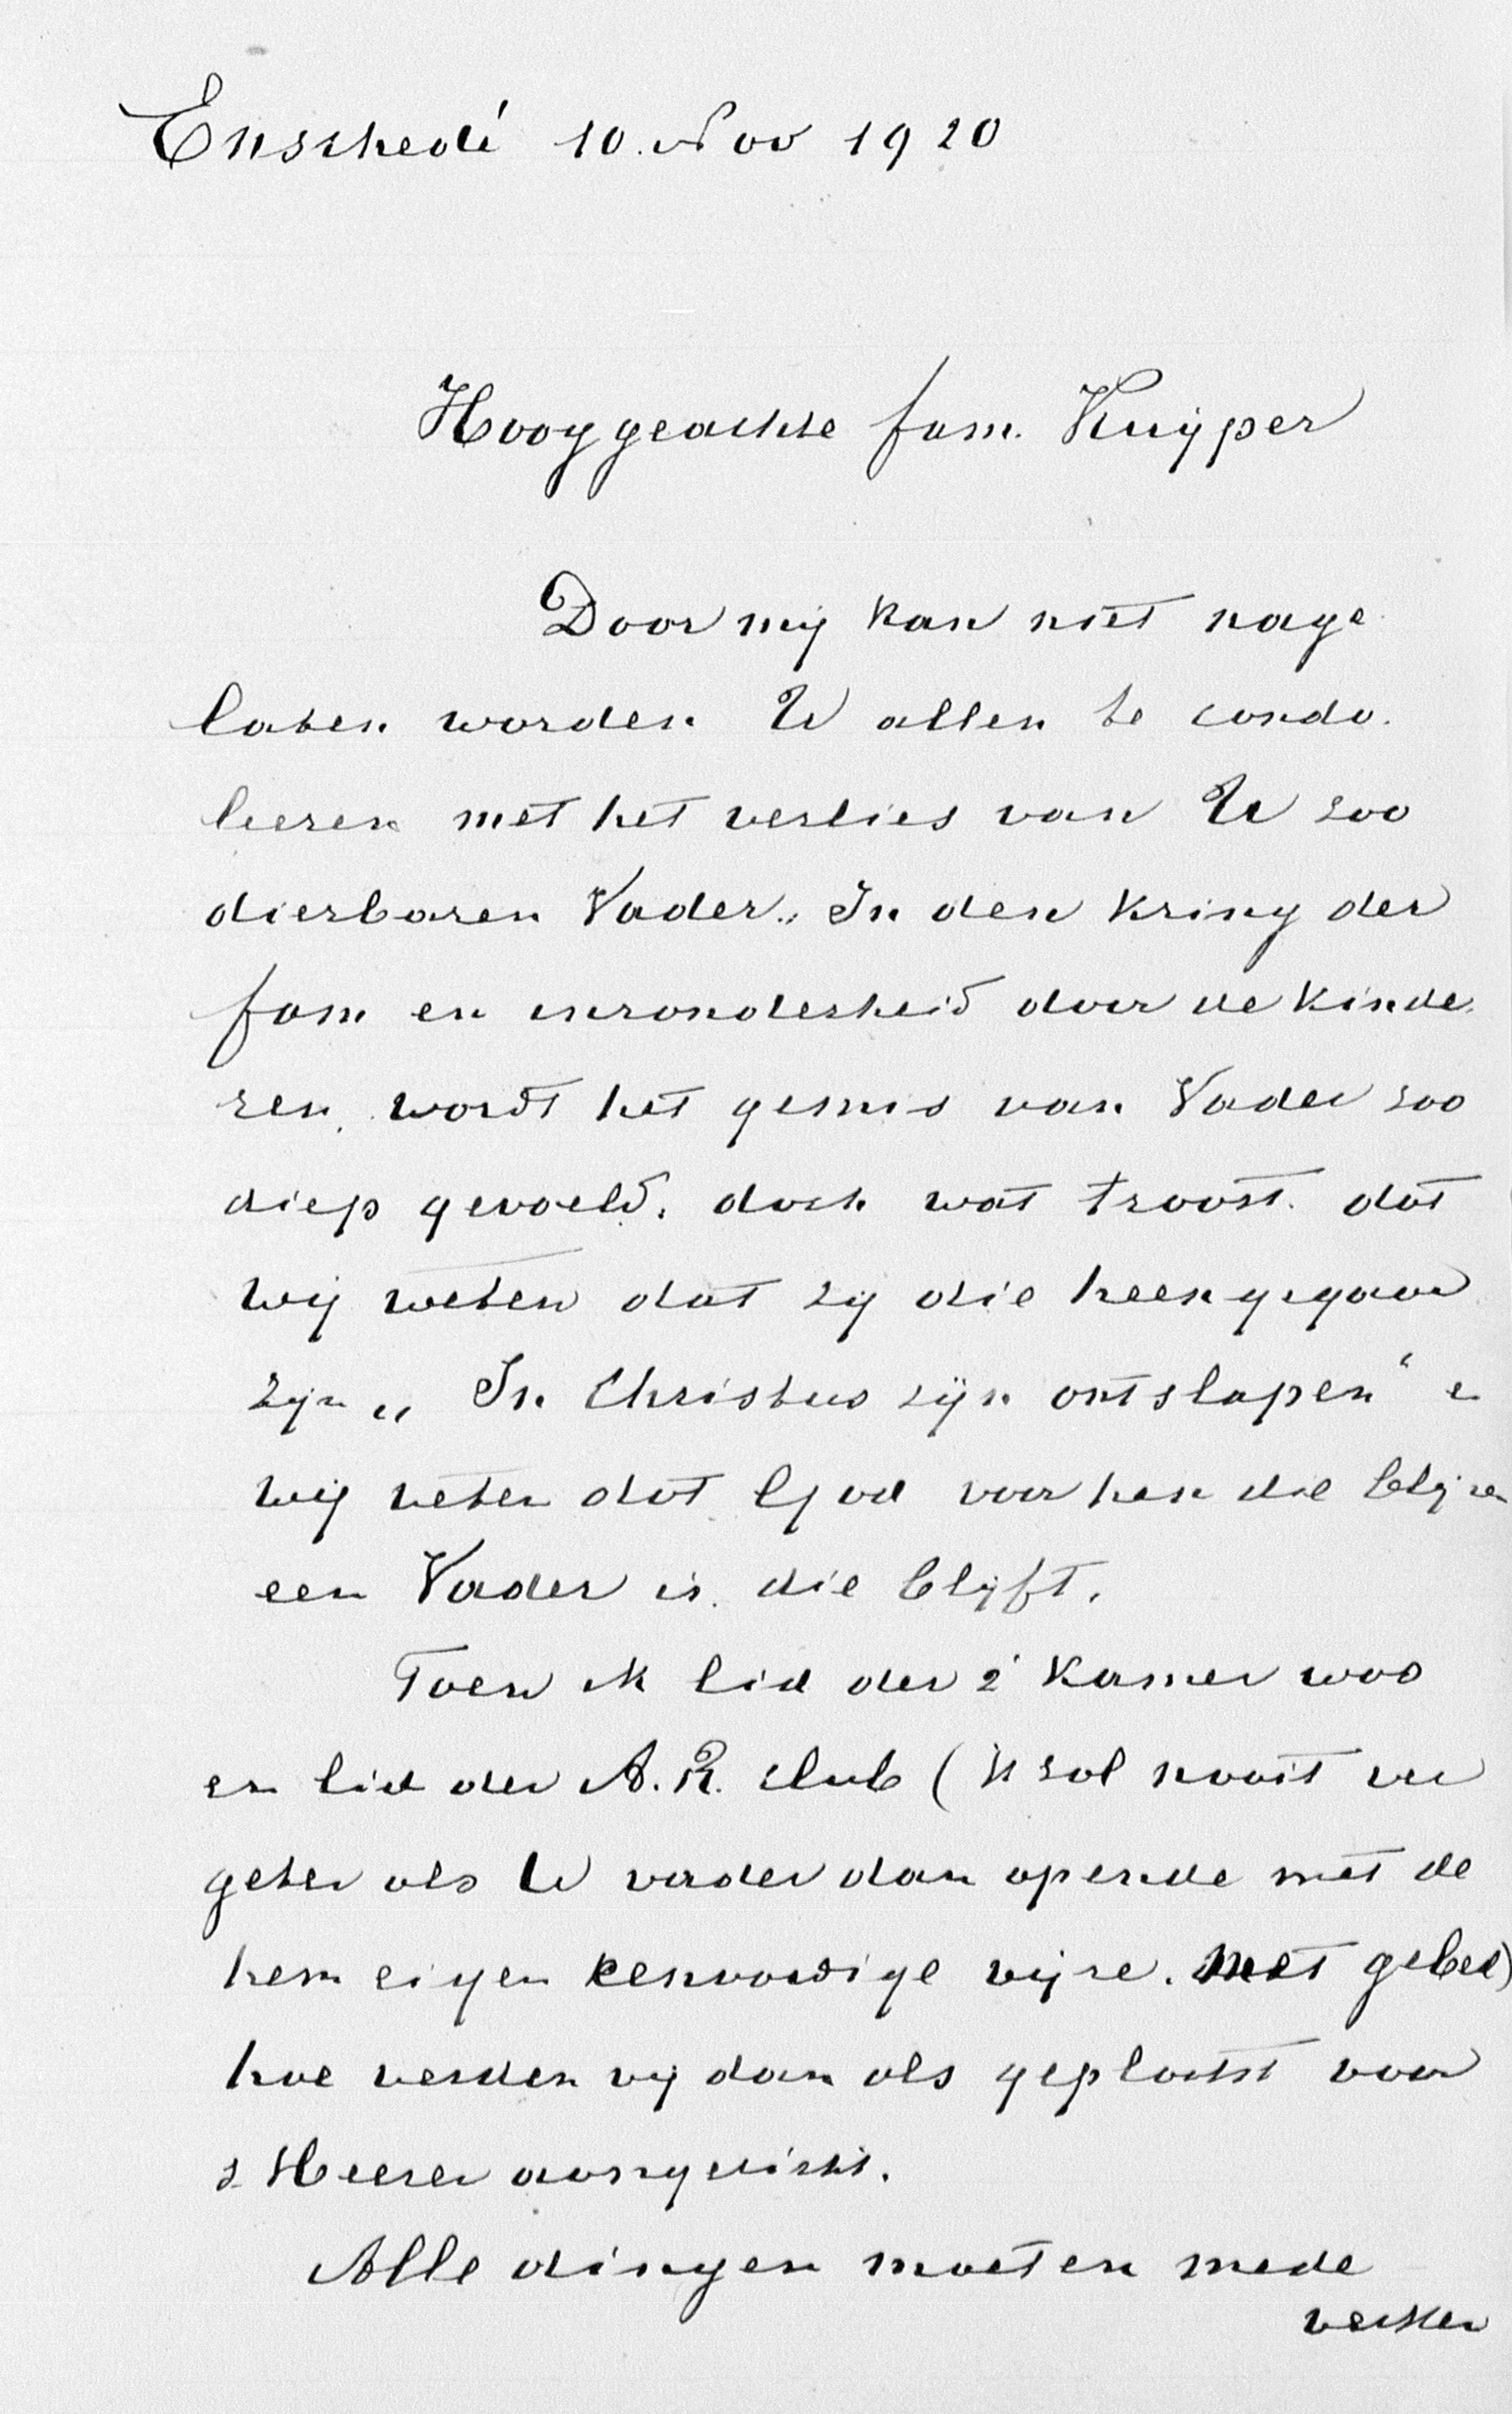 Enschedé 10. Nov 1920
Hooggeachte fam. Kuijper
Door mij kan niet nage
laten worden U allen te condo.
leeren met het verlies van U zoo
dierbaren Vader., In den Kring der
fam en inzonderheid door de Kinde.
ren, wordt het gemis van Vader zoo
diep gevoeld. doch wat troost. dat
wij weten dat zij die heengegaan
zijn „ In Christus zijn ontslapen“ en
wij weten dat God voor hen die blijven
een Vader is. die blijft.
Toen ik lid der 2e Kamer was
en lid der A. R. club (ik zal nooit ver
geten als U vader dan opende met de
hem eigen eenvoudige wijze. met gebed)
hoe werden wij dan als geplaatst voor
s Heeren aangezicht.
Alle dingen moeten mede
werken